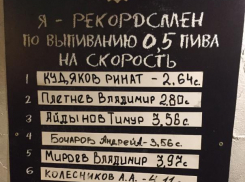 Я - РЕКОРДСМЕН
ПО ВЫПИВАНИЮ 0,5 ПИВА
НА СКОРОСТЬ
1 КУДЯКОВ РИНАТ - 2,64с.
2 ПЛЕТНЕВ ВЛАДИМИР 2,80с.
3 АЙДЫНОВ ТИМУР 3,58с.
4 БОЧАРОВ АНДРЕЙ - 3,56с.
5 МИРОЕВ ВЛАДИМИР 3,97с.
6 КОЛЕСНИКОВ А.А.